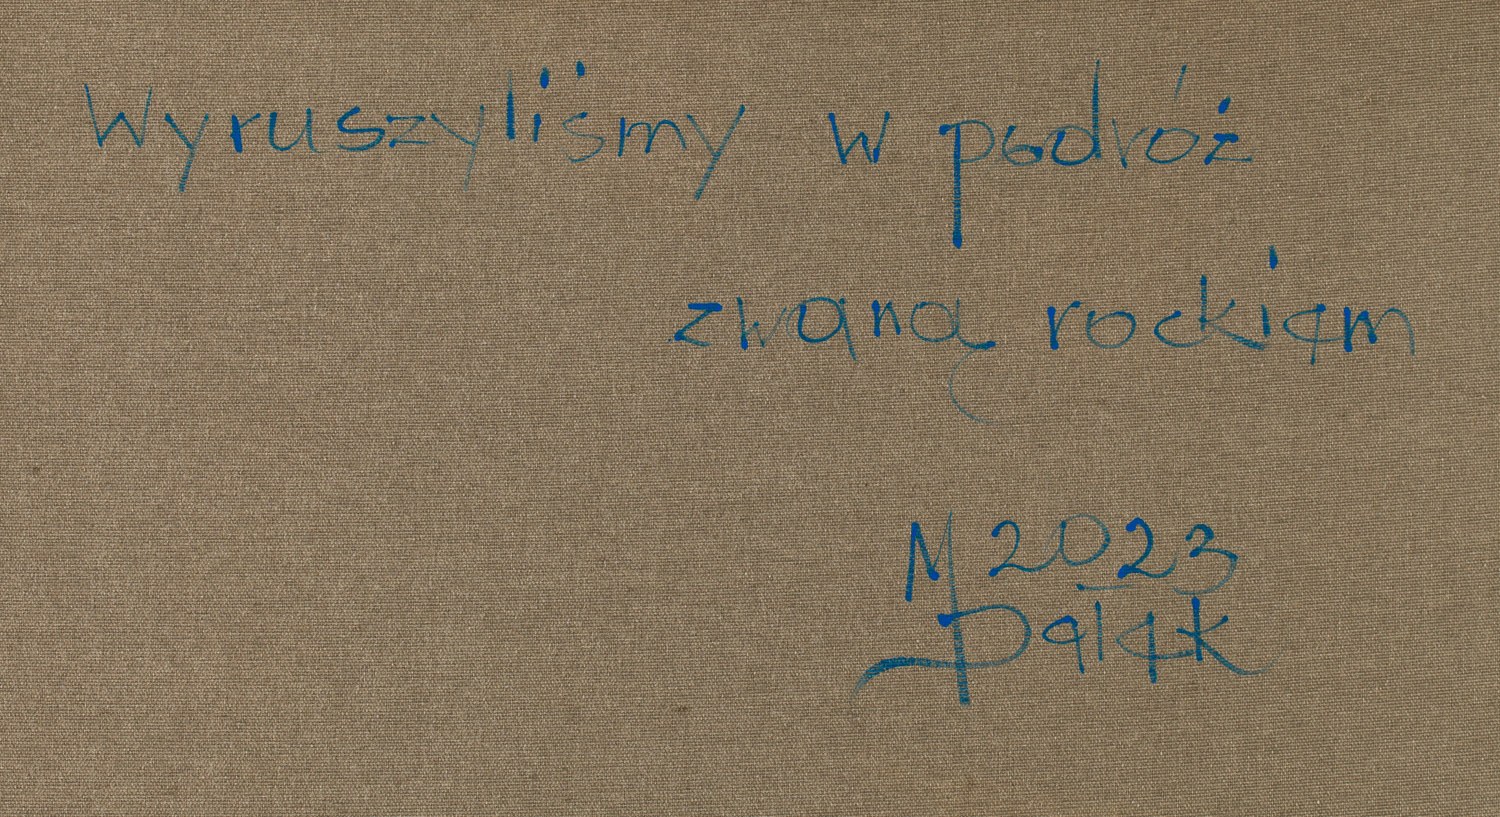 Wyruszyliśmy w podróż
zwaną rockiem
M 2023
Palek